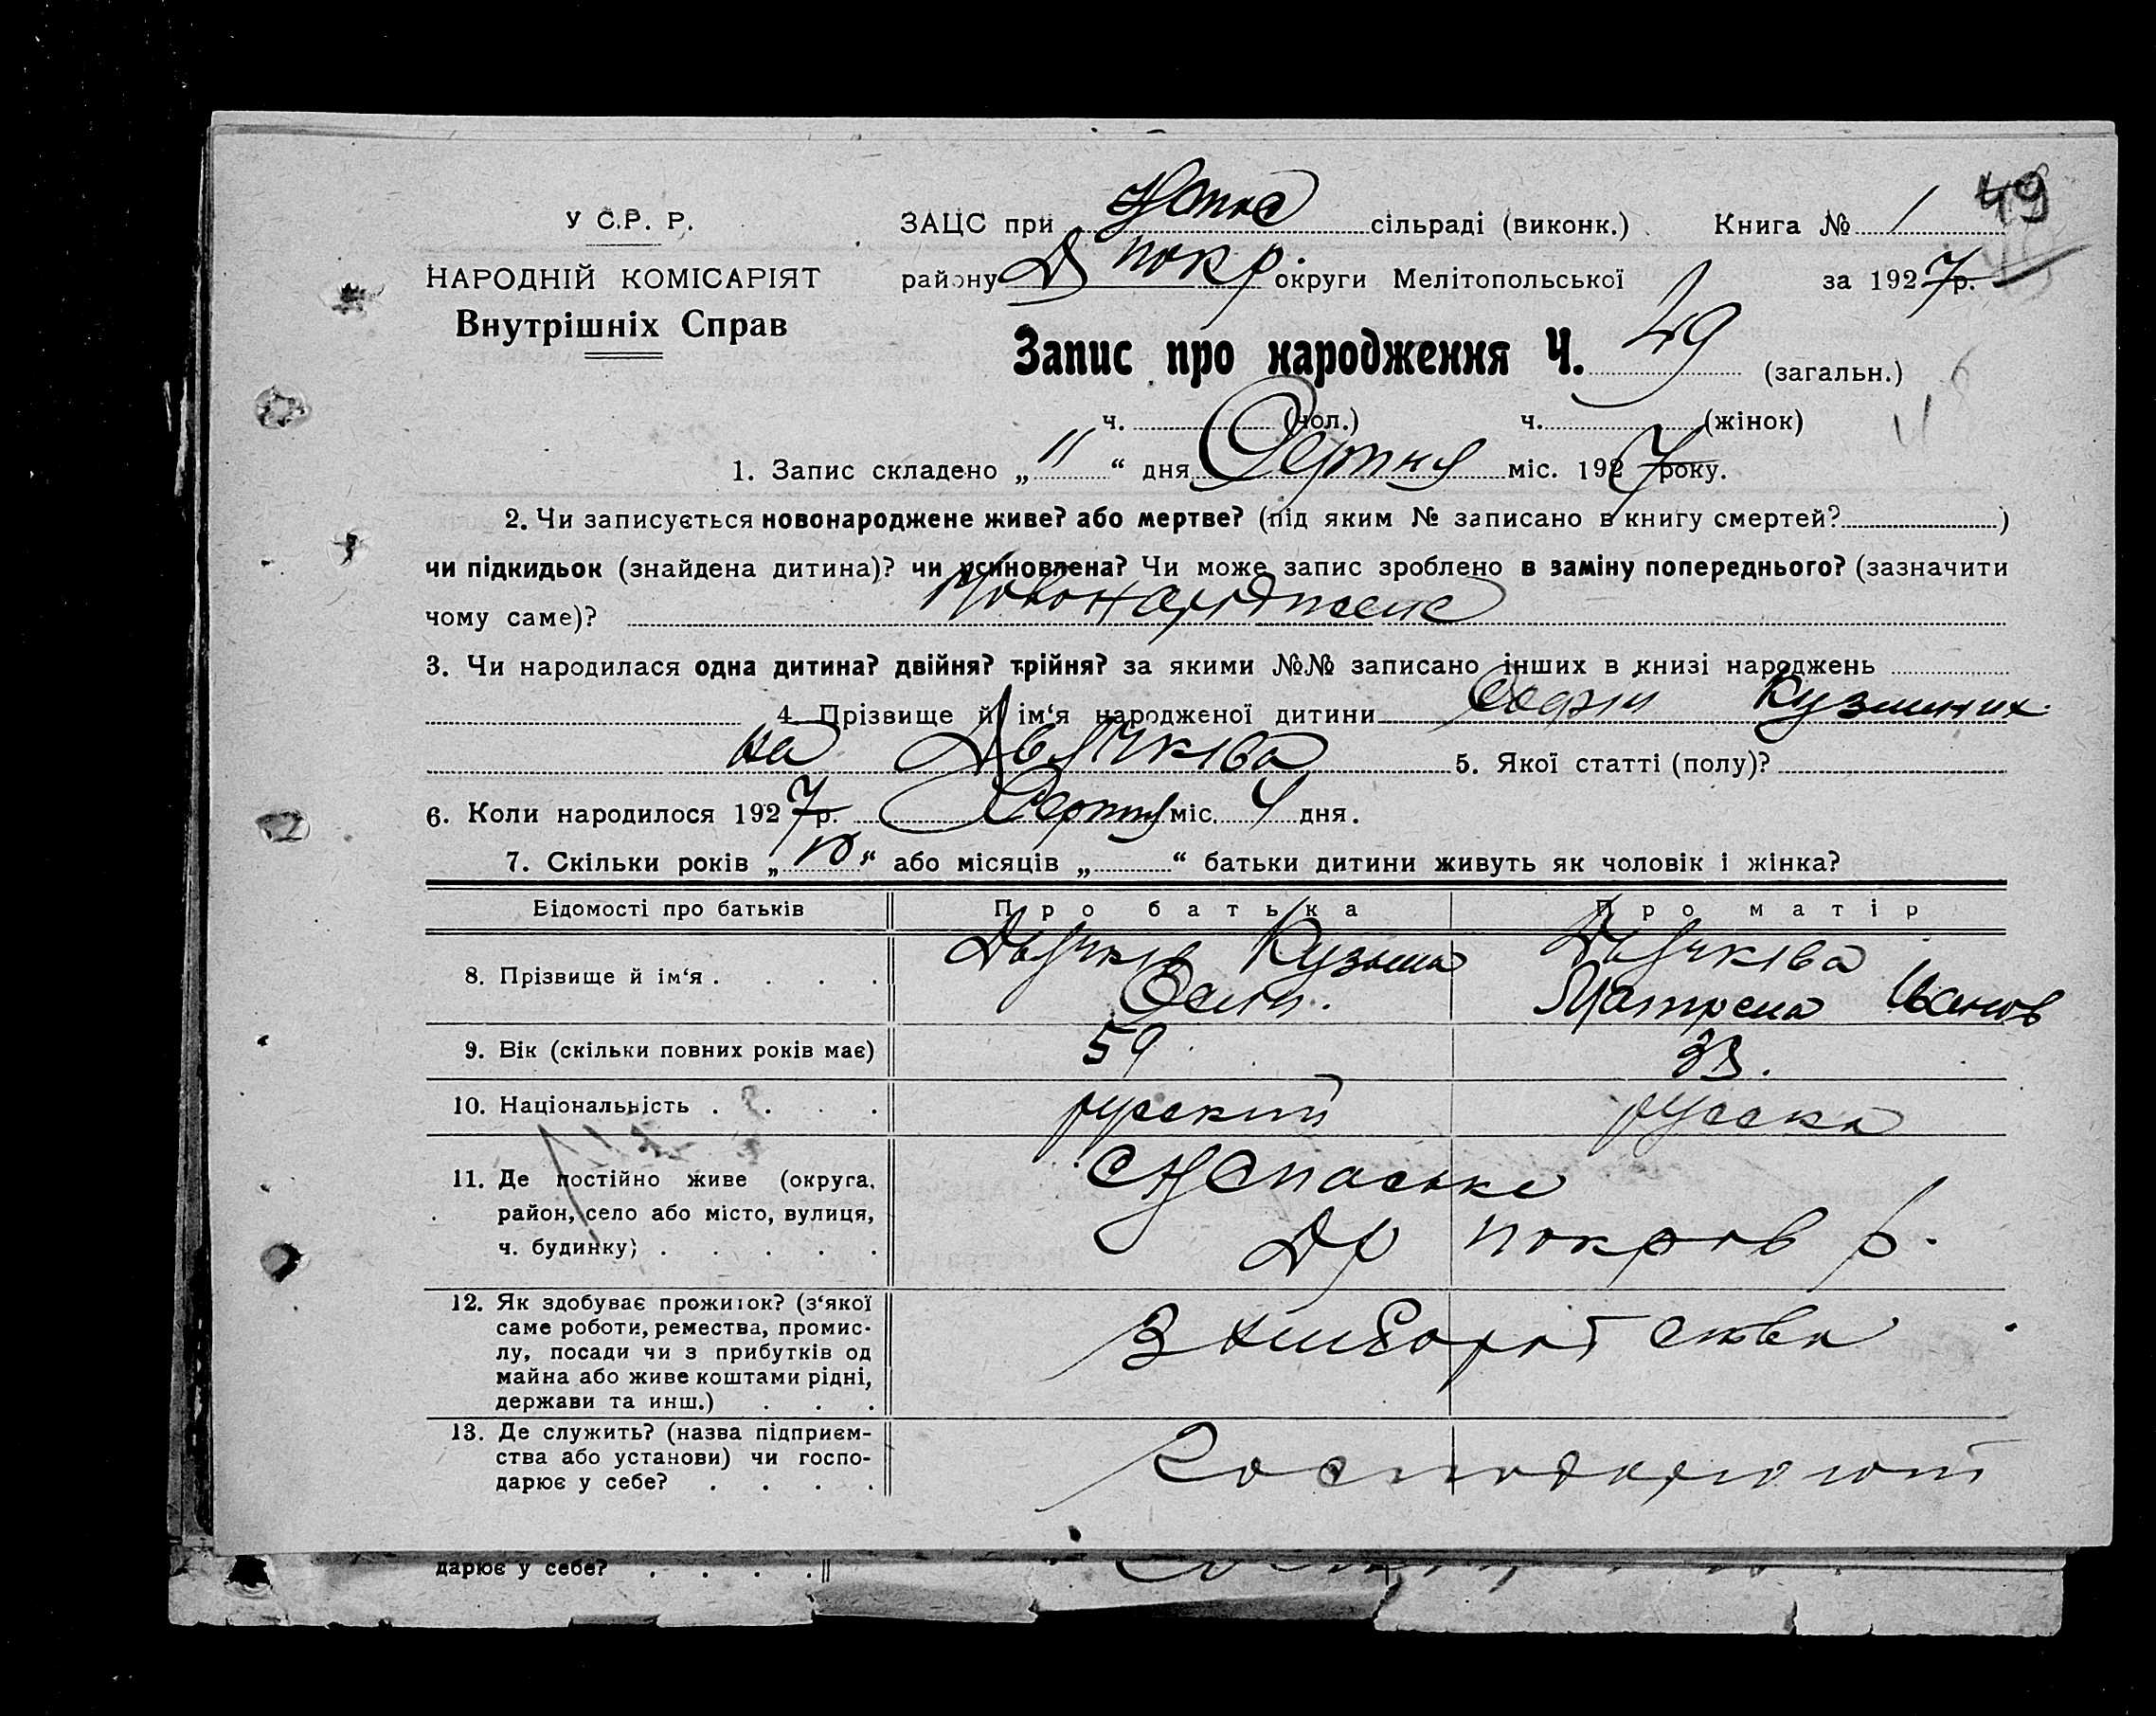 У С.Р. Р.
НАРОДНІЙ КОМІСАРІЯТ
Внутрішніх Справ
ЗАЦС при сільраді (виконк.) Книга № 1 49
району Д покр. округи Мелітопольської за 1927 р.
Запис про народження Ч. 49 (загальн.)
ч. (чол.) ч. (жінок)
1. Запис складено „ 11 “ дня Серпня міс. 1927 року.
2. Чи записується новонароджене живе? або мертве? (під яким № записано в книгу смертей? )
чи підкидьок (знайдена дитина)? чи усиновлена? Чи може запис зроблено в заміну попереднього? (зазначити
чому саме)? Новонароджене
3. Чи народилася одна дитина? двійня? трійня? за якими №№ записано інших в книзі народжень
4. Прізвище й ім‘я народженої дитини Кузминих
на Двячківа 5. Якої статті (полу)?
6. Коли народилося 1927 р. Серпня міс. 4 дня.
7. Скільки років „ 10 “ або місяців „ “ батьки дитини живуть як чоловік і жінка?
Відомості про батьків Про батька Про матір
8. Прізвище й ім‘я . . . . Двячків Кузьма Двячківа
Матрена Иванов
9. Вік (скільки повних років має) 59 33.
10. Національність . . . . русский русска
11. Де постійно живе (округа, район, село або місто, вулиця, ч. будинку) . . . . . Спаське
Др покров р.
12. Як здобуває прожиток? (з‘якої
саме роботи, ремества, промис-
лу, посади чи з прибутків од
майна або живе коштами рідні,
держави та инш.) . . .
З хлиборобства
13. Де служить? (назва підприєм-
ства або установи) чи госпо-
дарює у себе? . . . .
Господарюють
дарює у себе? . . . .